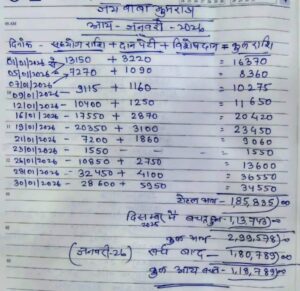 जय बाबा कुमराज
आय - जनवरी - 2026
दिनांक - सहयोग राशि + दान पेटी + विशेष दान = कुल राशि
01/01/2026 → 13150 + 3220 = 16370
05/01/2026 → 7270 + 1090 = 8360
07/01/2026
09/01/2026 - 9115 + 1160 = 10275
12/01/2026 - 10400 + 1250 = 11650
16/01/2026 - 17550 + 2870 = 20420
19/01/2026 - 20350 + 3100 = 23450
21/01/2026 - 7200 + 1860 = 9060
23/01/2026 - 1550 - - = 1550
26/01/2026 - 10850 + 2750 = 13600
28/01/2026 - 32450 + 4100 = 36550
30/01/2026 - 28600 + 5950 = 34550
टोटल आय - 1,85,835/=00
दिसम्बर 2025 में बचत 1,13,743/=00
कुल आय 2,99,578/=00
(जनवरी-26) खर्च बाद - 1,80,789/=00
कुल आय बचत - 1,18,789/=00